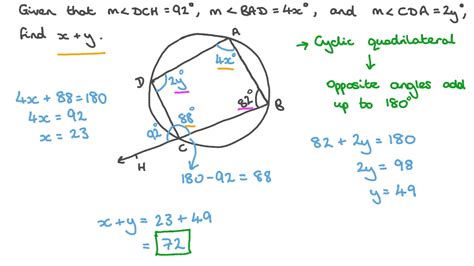 Given that m∠DCH = 92°, m∠BAD = 4x°, and m∠CDA = 2y°,
find x + y.
→ Cyclic quadrilateral
Opposite angles add
up to 180°
A
4x°
D
2y°
82°
B
88°
92°
C
H
180 - 92 = 88
4x + 88 = 180
4x = 92
x = 23
82 + 2y = 180
2y = 98
y = 49
x + y = 23 + 49
= 72